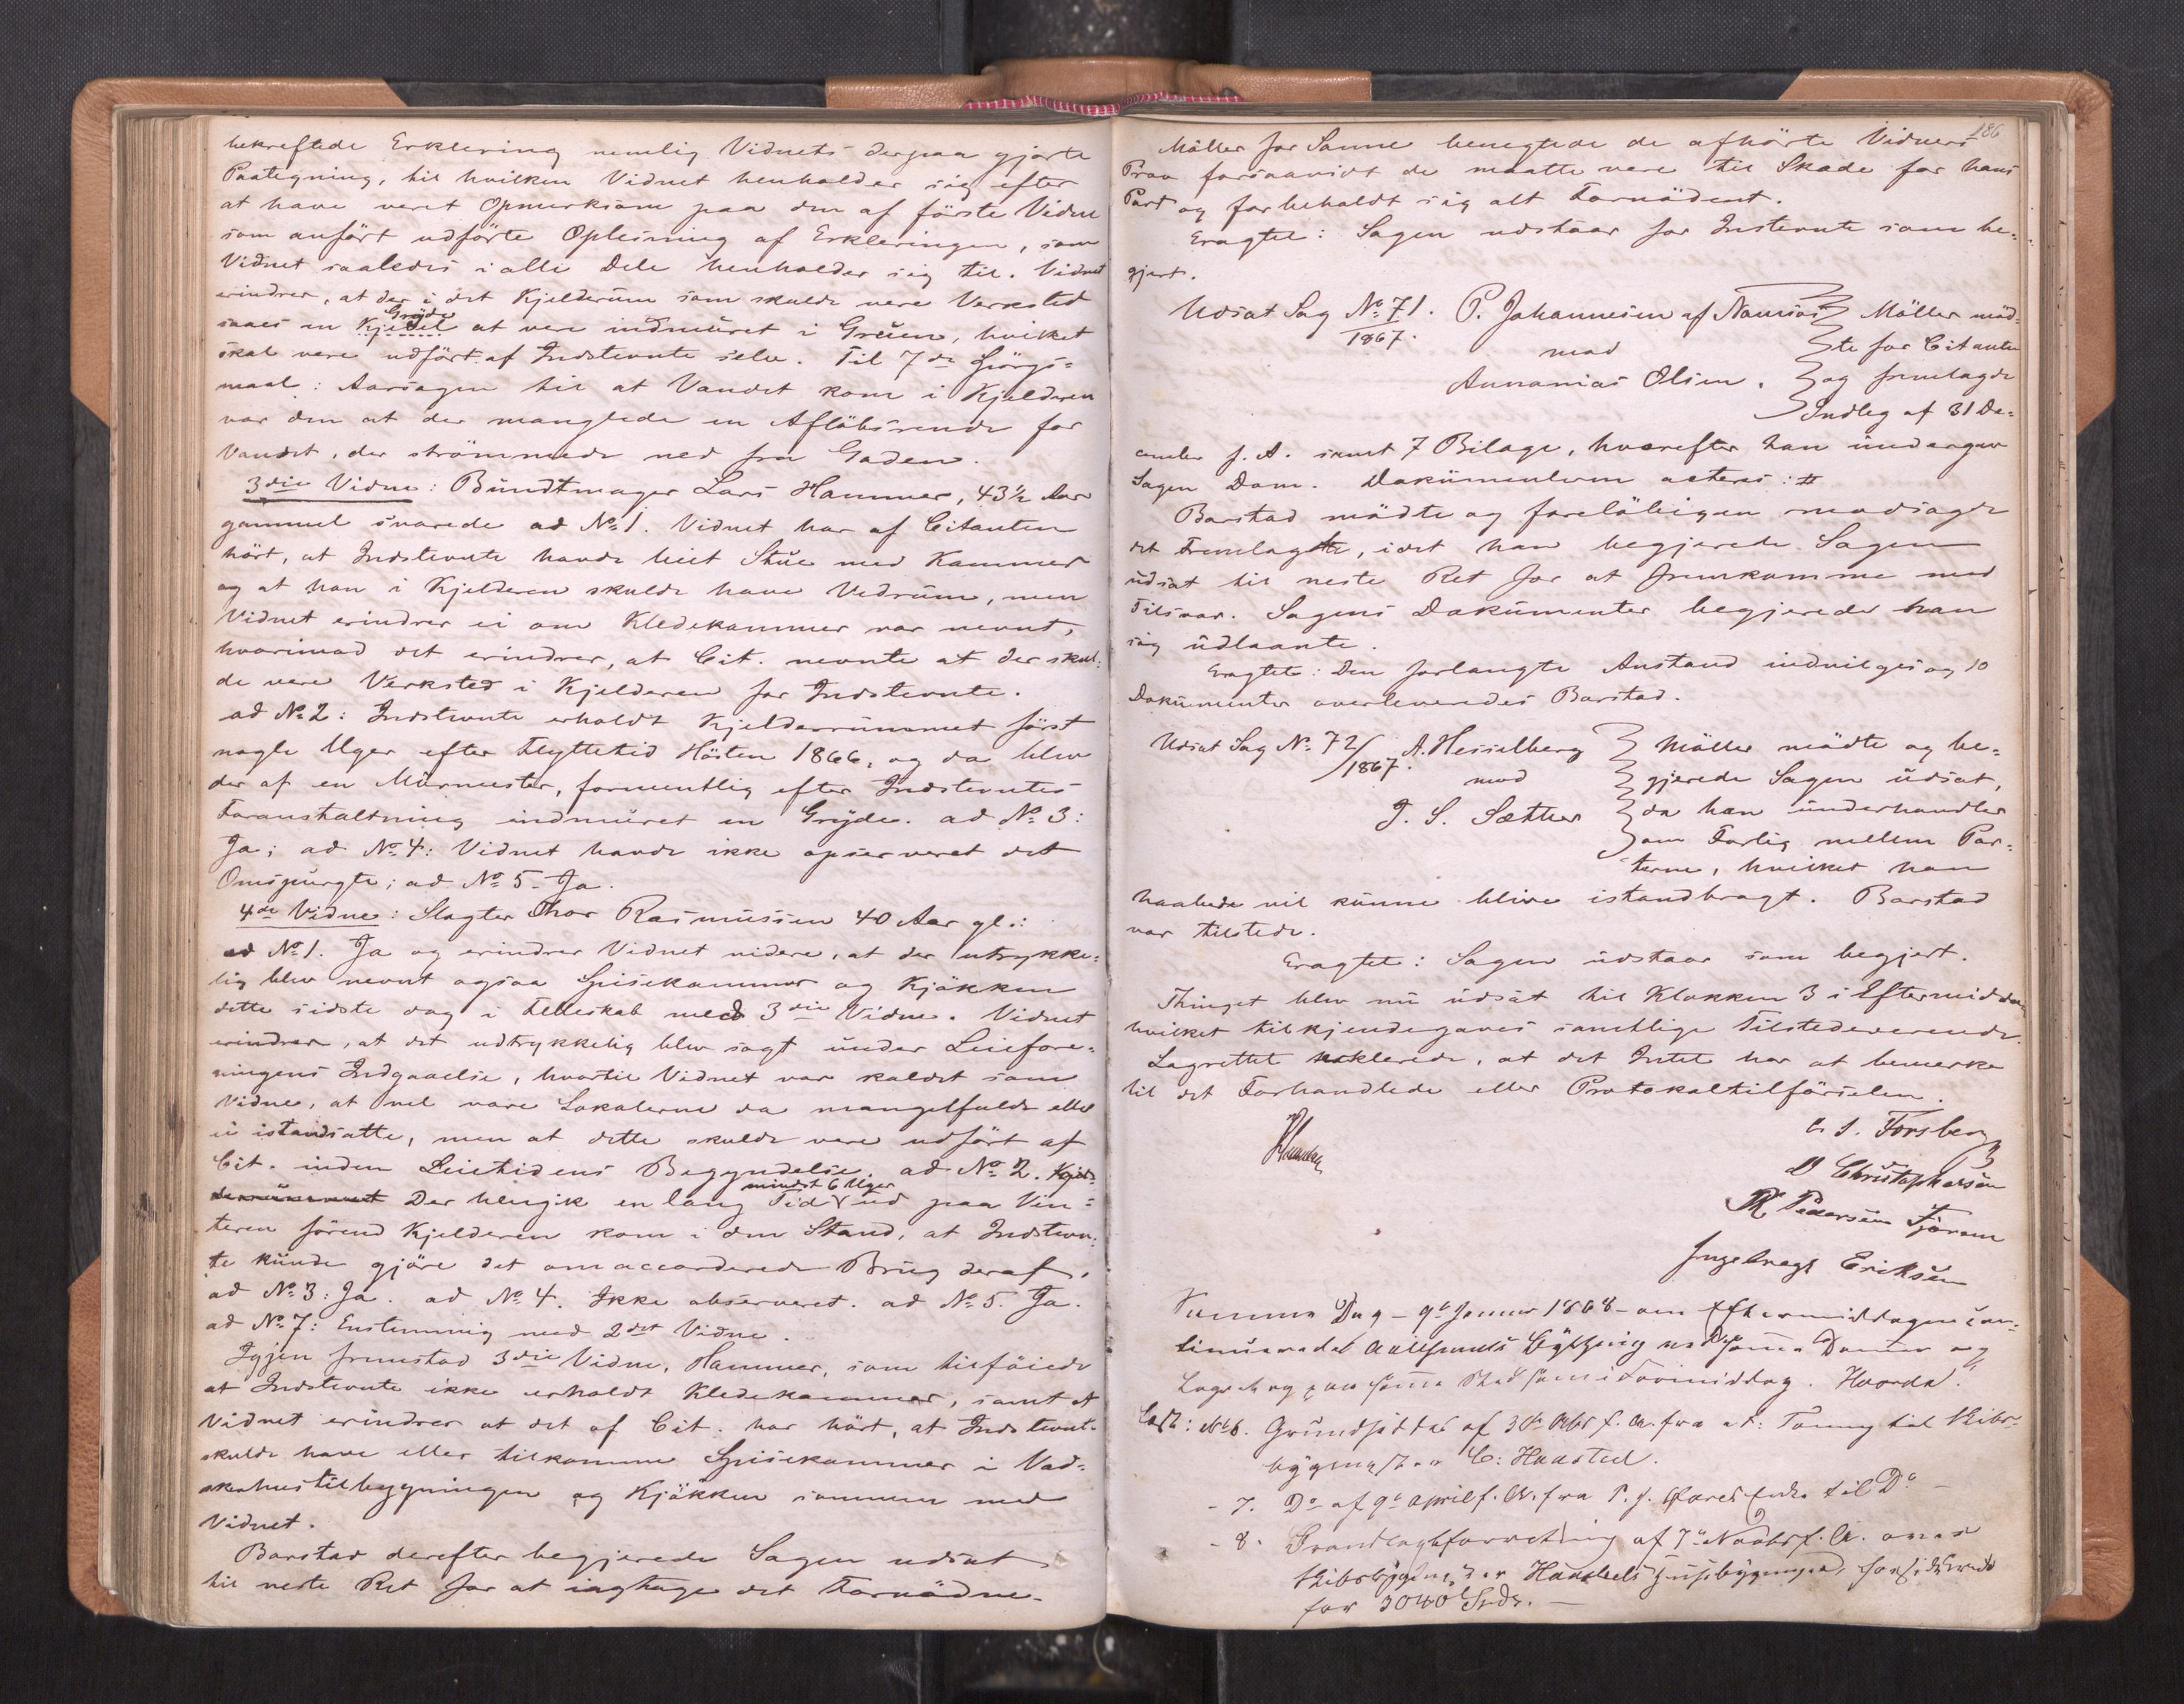 bekreftede Erklering nemlig Vidnets derpaa gjorte
Paategning, til hvilken Vidnet henholder sig efter
at have veret Opmerksom paa den af förste Vidne
som anfört udförte Oplesning af Erkleringen, som
Vidnet saaledes i alle Dele henholder sig til. Vidnet
erindrer, at der i det Kjelderrum som skulde vere Verksted
Gryde
saaes en Kjedel at vere indmuret i Gruen, hvilket
skal vere udfört af Indstevnte selv. Til 7de Spörgs=
maal: Aarsagen til at Vandet kom i Kjelderen
var den at der manglede en Aflöbsrende for
Vandet, der strömmede ned fra Gaden.
3die Vidne: Bundtmager Lars Hammer, 43½ Aar
gammel svarede ad No 1. Vidnet har af Citanten
hört, at Indstevnte havde leiet Stue med Kammer
og at han i Kjelderen skulde have Vedrum, men
Vidnet erindrer ei om Kledekammer var nevnt,
hvorimod det erindrer, at Cit. nevnte at der skul=
de vere Verksted i Kjelderen for Indstevnte.
ad No 2: Indstevnte erholdt Kjelderrummet först
nogle Uger efter Flyttetid Hösten 1866, og da blev
der af en Murmester, formentlig efter Indstevntes
Foranstaltning indmuret en Gryde. ad No 3:
Ja; ad No 4: Vidnet havde ikke opserveret det
Omspurgte; ad No 5. Ja.
4de Vidne: Slagter Thor Rasmussen 40 Aar gl.:
ad No 1. Ja og erindrer Vidnet videre, at der utrykke=
lig blev nevnt ogsaa Spisekammer og Kjökken
dette sidste dog i Felleskab med 3die Vidne. Vidnet
erindrer, at det udtrykkelig blev sagt under Leiefore=
ningens Indgaaelse, hvortil Vidnet var kaldet som
Vidne, at vel vare Lokalerne da mangelfulde eller
ei istandsatte, men at dette skulde vere udfört af
Cit. inden Leietidens Begyndelse. ad No 2. Kjel=
mindst 6 Uger
derrummet Der hengik en lang Tid ud paa Vin=
teren förend Kjelderen kom i den Stand, at Indstevn=
te kunde gjöre det omaccorderede Brug deraf.
ad No 3: Ja. ad No 4. Ikke observeret. ad No 5. Ja.
ad No 7: Enstemmig med 2det Vidne.
Igjen fremstod 3die Vidne, Hammer, som tilföiede
at Indstevnte ikke erholdt Kledekammer, samt at
Vidnet erindrer at det af Cit. har hört, at Indstevnt=
skulde have eller tilkomme Spisekammer i Vad=
skerhustilbygningen og Kjökken sammen med
Vidnet.
Barstad derefter begjerede Sagen udsat
til neste Ret for at iagttage det Fornödne.
186
Möller for Sanne benegtede de afhörte Vidners
Prov forsaavidt de maatte vere til Skade for hans
Part og forbeholdt sig alt Fornödent.
Eragtet: Sagen udstaar for Instevnte som be=
gjert.
Udsat Sag No 71. P. Johannesen af Namsos Möller möd=
1867. mod te for Citanten
Annanias Olsen. og fremlagde
Indleg af 31 De=
cember f. A. samt 7 Bilage, hvorefter han undergav
Sagen Dom. Dokumenterne acteres: #
Barstad mödte og foreløbigen modsagde
det Fremlagte, idet han begjerede Sagen
udsat til neste Ret for at fremkomme med
Tilsvar. Sagens Dokumenter begjerede han
sig udlaante.
Eragtet: Den forlangte Anstand indvilges og 10
Dokumenter overleveredes Barstad.
Udsat Sag No 72/1867. A. Hesselberg Möller mödte og be=
mod gjerede Sagen udsat,
J. S. Sæther da han underhandler
om Forlig mellem Par=
terne, hvilket han
haabede vil kunne blive istandbragt. Barstad
var tilstede.
Eragtet: Sagen udstaar som begjert.
Thinget blev nu udsat til Klokken 3 i Eftermiddag
hvilket tilkjendegaves samtlige Tilstedeverende.
Lagrettet deklerede, at det Intet har at bemerke
til det Forhandlede eller Protokoltilförselen.
C. S. Forsberg
O Christophersen
P. Pedersen Fjörem
Ingebregt Eriksen
Samme Dag - 9de Januar 1868 - om Eftermiddagen con=
tinueredes af samme Dommer og
Lagret og paa samme Sted som i Formiddag.
Læst: No 6. Grundseddel af 30te f. A. fra til Skibs=
bygmester C. Haasted.
- 7. Do af 9de April f. A. fra P. J. til Do
- 8. Brandtaxtforretning af 7de Novbr f. A. over
Skibsbygmester Haasteds Huusbygninger, forsikkrede
for 3040 Spdr. —